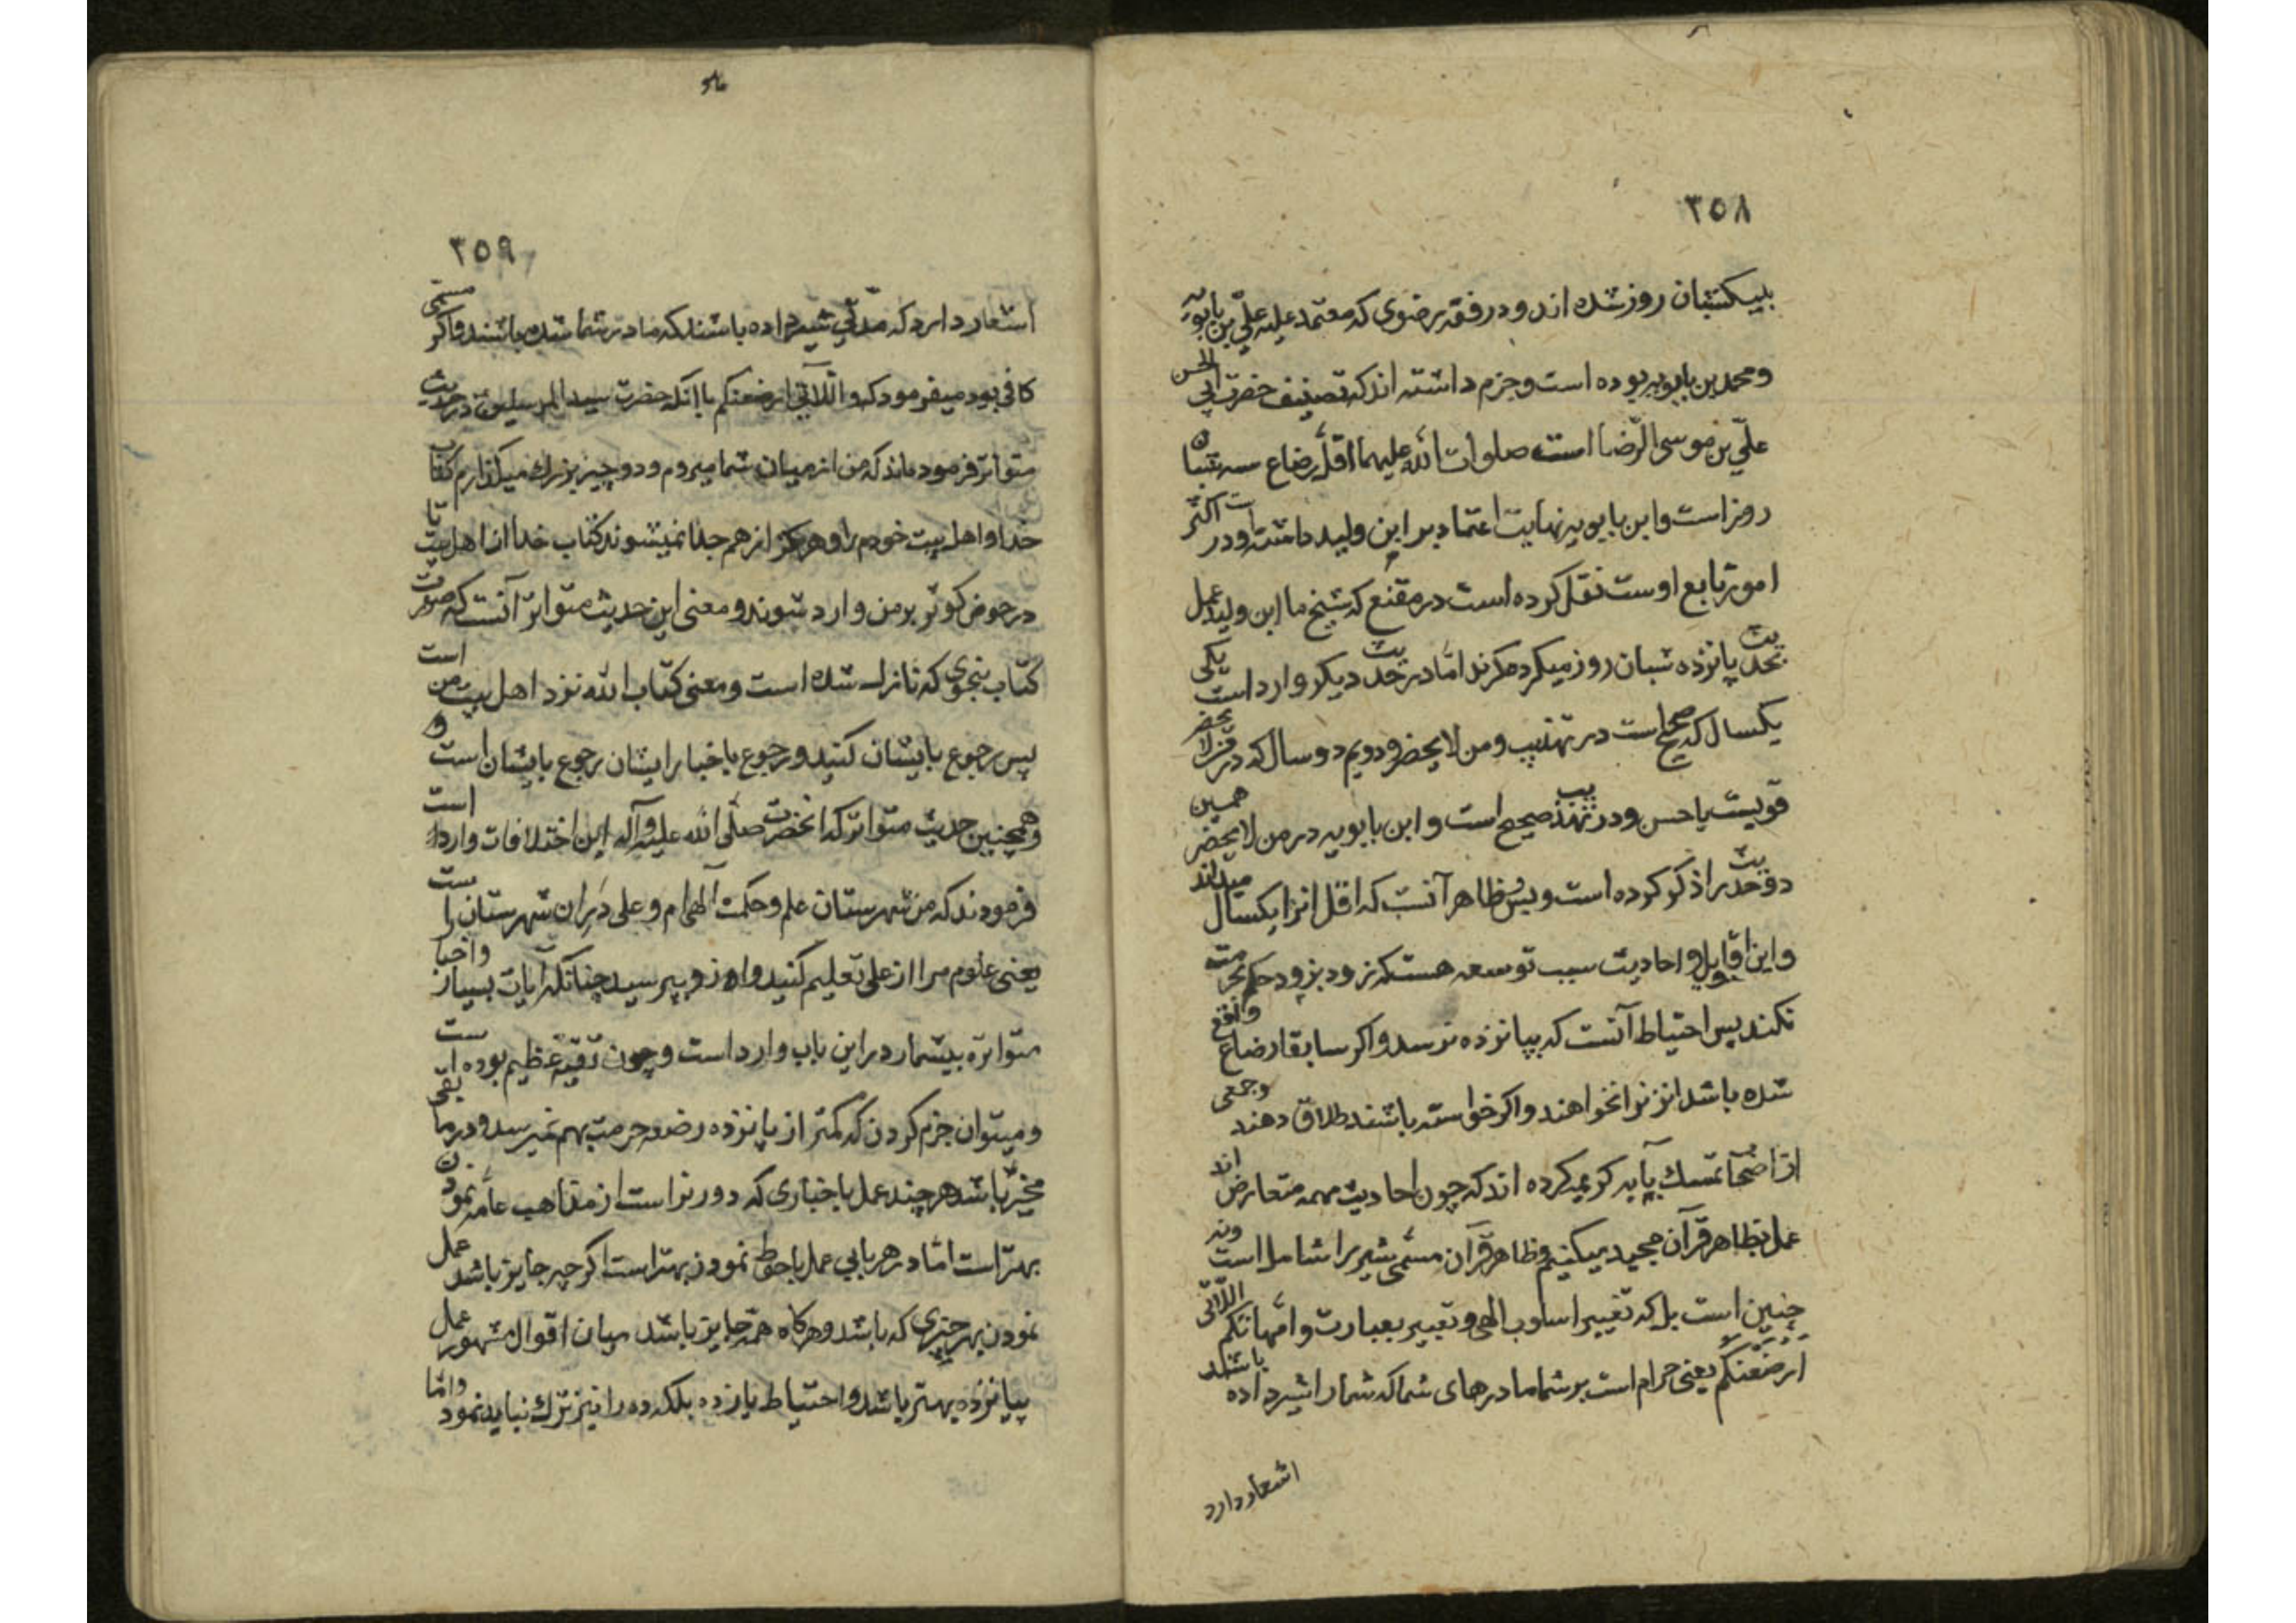 ٣٥٨
بیکشبان روز شده اند و در فقه رضوی که معتمد علیه علیّ بن بابویه
و محمد بن بابویه بوده است و جزم داشته اند که تصنیف حضرت ابی الحسن
علیّ بن موسی الرّضا است صلوات الله علیهما اقلّ رضاع سه شبان
روز است و ابن بابویه نهایت اعتماد بر ابن ولید داشته است و در اکثر
امور تابع اوست نقل کرده است در مقنع که شیخ ما ابن ولید عمل
بحدیث پانزده شبان روز میکرده‌کرند امّا در حدیث دیکر وارد است یکی
یکسال که صحیح است در تهذیب و من لا یحضر و دویم دو سال که در من لا یحضر
قویست یا حسن و در تهذیب صحیح است و ابن بابویه در من لا یحضر همین
دو حدیث را ذکر کرده است و بس ظاهر آنست که اقل انرا یکسال میداند
و این اقاویل و احادیث سبب توسعه هست که زود بزود حکم بحرمت
نکند پس احتیاط آنست که بپانزده نرسد و اکر سابقا رضاع واقع
شده باشد انزنرا نخواهند و اکر خواسته باشند طلاق دهند و جمعی
از اصحاب تمسک بآیه کریمه کرده اند که چون احادیث همه متعارض اند
عمل بظاهر قرآن مجید میکنیم و ظاهر قرآن مسمّی شیر را شامل است و نه
چنین است بلکه تغییر اسلوب الهی و تعبیر بعبارت و امّهاتکم اللّاتی
ارضعنکم یعنی حرام است بر شما مادرهای شما که شما را شیر داده باشند
اشعار دارد
٣٥٩
اشعار دارد که مدّتی شیر داده باشند که مادر شما شده باشند و اکر مسمّی
کافی بود میفرمود که و اللّاتی ارضعنکم با آنکه حضرت سید المرسلین در حدیث
متواتر فرموده‌اند که من از میان شما میروم و دو چیز بزرک میکذارم کتاب
خدا و اهل بیت خودم را و هرکز از هم جدا نمیشوند کتاب خدا از اهل بیت تا
در حوض کوثر بر من وارد شوند و معنی این حدیث متواتر آنست که صورت
کتاب بنحوی که نازل شده است و معنی کتاب الله نزد اهل بیت من است
پس رجوع بایشان کنید و رجوع باخبار ایشان رجوع بایشان است و
همچنین حدیث متواتر که انحضرت صلّی الله علیه و آله این اختلافات وارد است
فرمودند که من شهرستان علم و حکمت آلهی ام و علی در ان شهرستان است
یعنی علوم مرا از علی تعلیم کنید و از او بپرسید چنانکه آیات بسیار و اخبار
متواتره بیشمار در این باب وارد است و چون تقیّه عظیم بوده است
و میتوان جزم کردن که کمتر از پانزده رضعه حرمت بهم نمیرسد و در مابقی
مخیّر باشد هر چند عمل باخباری که دورتر است از مذاهب عامه نمودن
بهتر است امّا در هر بابی عمل باحوط نمودن بهتر است اکر چه جایز باشد عمل
نمودن بهر چیزی که باشد و هرکاه همه جایز باشد میان اقوال مشهور عمل
بپانزده بهتر باشد و احتیاط یازده بلکه ده را نیز ترک نباید نمود و امّا